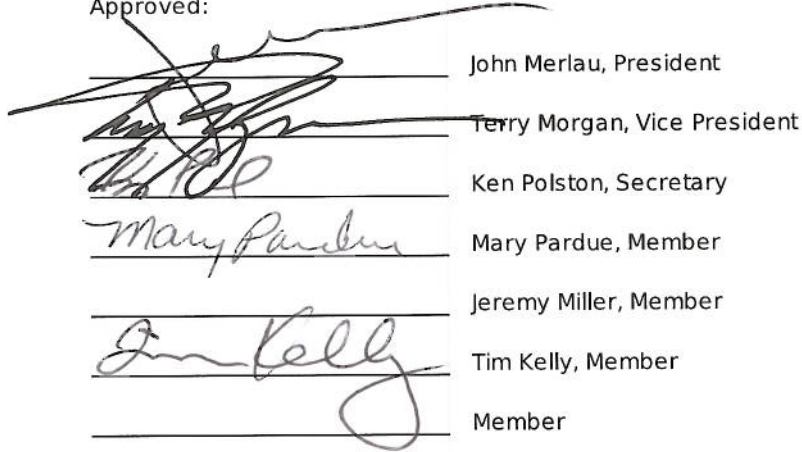 Approved:
John Merlau, President
Terry Morgan, Vice President
Ken Polston, Secretary
Mary Pardue Mary Pardue, Member
Jeremy Miller, Member
Tim Kelly Tim Kelly, Member
Member